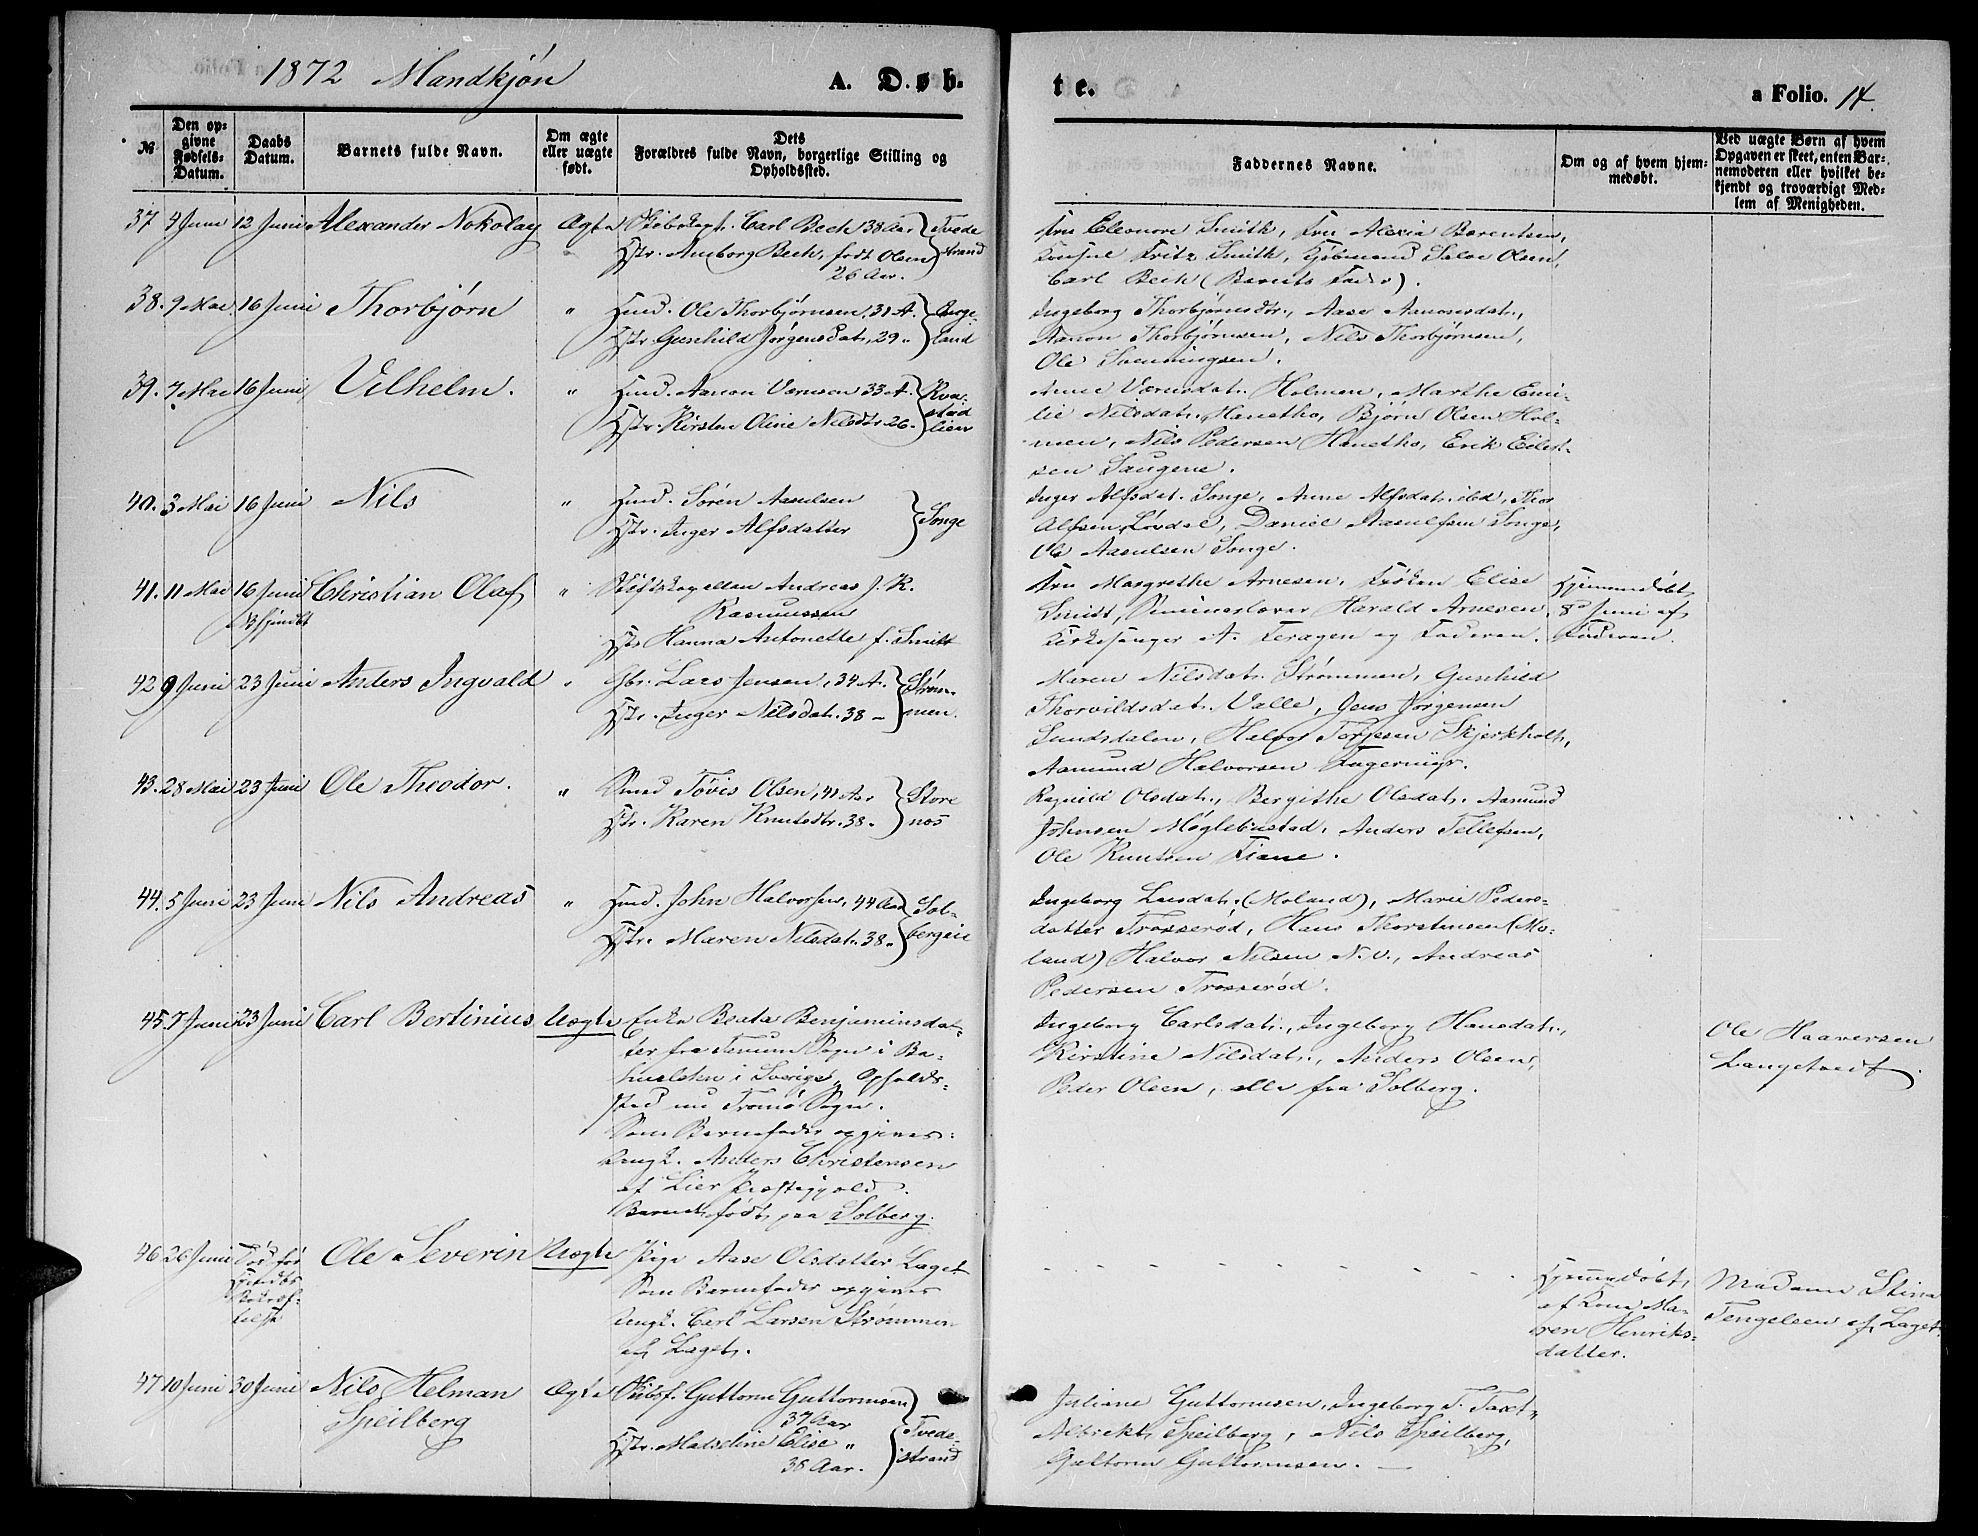 1872 Mandkjøn
A. Døb-
te.
a Folio. 14.
№
Den op-
givne
Fødsels-
Datum.
Daabs
Datum.
Barnets fulde Navn.
Om ægte
eller uægte
født.
Dets
Forældres fulde Navn, borgerlige Stilling og
Opholdssted.
Faddernes Navne.
Om og af hvem hjem-
medøbt.
Ved uægte Børn af hvem
Opgaven er skeet, enten Bar-
nemoderen eller hvilket be-
kjendt og troværdigt Med-
lem af Menigheden.
37 4 Juni 12 Juni Alexander Nokolay Ægte Carl Bech 38 Aar Tvede
Hstr. Bech, født Olsen strand
26 Aar.
Fru Eleonore Smith, Fru Alexia Barentsen,
Konsul Fritz Smith, Kjøbmand Olsen,
Carl Bech (Barnets Fader).
38. 9 Mai 16 Juni Thorbjørn " Hmd. Ole Thorbjørnsen, 31 A. Berge-
Hstr. Gunhild Jørgensdat. 29 " land
Ingeborg Thorbjørnsdtr., Aase Aanonsdat.,
Aanon Thorbjørnsen, Nils Thorbjørnsen,
Ole Svenningsen.
39. 7 Mai 16 Juni Vilhelm. " Hmd. Aanon 33 A. Kva-
Hstr. Kirsten Oline Nilsdtr. 26 " stad
lien
Anne Holmen, Marthe Emi-
lie Nilsdat. Hanetho, Bjørn Olsen Hol-
men, Nils Pedersen Hanetho, Erik Eilert-
sen Saugene.
40. 3 Mai 16 Juni Nils " Hmd. Søren Aasulsen
Hstr. Inger Alfsdatter Songe
Inger Alfsdat. Songe, Anne Alfsdat. ibd, Thor
Alfsen Løvdal, Daniel Aasulsen Songe,
Ole Aasulsen Songe.
41. 11 Mai 16 Juni Christian Olaf " Andreas J. K.
Rasmussen
Hstr. Hanna Antonette f. Smitt
Fru Margrethe Arnesen, Frøken Elise
Smidt, Harald Arnesen,
Kirkesanger A. Feragen og Faderen.
Hjemmedøbt
8de Juni af
Faderen.
42 9 Juni 23 Juni Anders Ingvald " Gbr. Lars Jensen, 34 A. Strøm-
Hstr. Inger Nilsdat. 38 " men.
Maren Nilsdat. Strømmen, Gunhild
Thorvildsdat. Valle, Jens Jørgensen
Sundsdalen, Halvor Terjesen Skjerkholt,
Aamund Halvorsen Fagermyr.
43. 28 Mai 23 Juni Ole Theodor. " Smed Tøvis Olsen, 41 Aar Store
Hstr. Karen Knutsdtr. 38 " nos
Ragnild Olsdat., Bergithe Olsdat. Aasmund
Johnsen Møglebustad, Anders Tellefsen,
Ole Knutsen Fiane.
44. 5 Juni 23 Juni Nils Andreas " Hmd. John Halvorsen, 44 Aar Sol-
Hstr. Maren Nilsdat. 38 " bergeie
Ingeborg Larsdat. (Moland), Marie Peders-
datter Trosserød, Hans Thorstensen (Mo-
land) Halvor Nilsen N.V., Andreas
Pedersen Trosserød.
45. 7 Juni 23 Juni Carl Bertinius Uægte Enke Beata Benjaminsdat-
ter fra Tanum Sogn i Ba-
huslehn i Sverige, Opholds-
sted nu Tromø Sogn.
Som Barnefader opgives:
Ungk. Anders Christensen
af Lier Præstegjæld.
Barnet født paa Solberg.
Ingeborg Carlsdat., Ingeborg Hansdat.,
Kirstine Nilsdat., Anders Olsen,
Peder Olsen, alle fra Solberg.
Ole Haaversen
Langetvedt
46 26 Juni Død før Ole Severin Uægte Pige Aase Olsdatter Laget
Som Barnefader opgives
Ungk. Carl Larsen Strømmen
af Laget.
Hjemmedøbt
af Kone Ma-
ren Henriks-
datter.
Madame Stina
Tengelsen af Laget.
47 10 Juni 30 Juni Nils Helman Ægte Skibsf. Guttorm Guttormsen
Speilberg 37 Aar Tvede-
Hstr. Elise " strand
38 Aar.
Juliane Guttormsen, Ingeborg T.
Albrekt Speilberg, Nils Speilberg,
Guttorm Guttormsen.